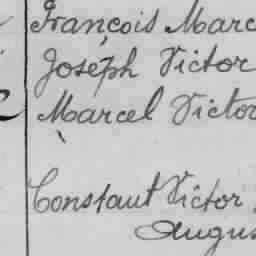 François Marc
Joseph Victor
Marcel Victor
Constant Victor
Augus